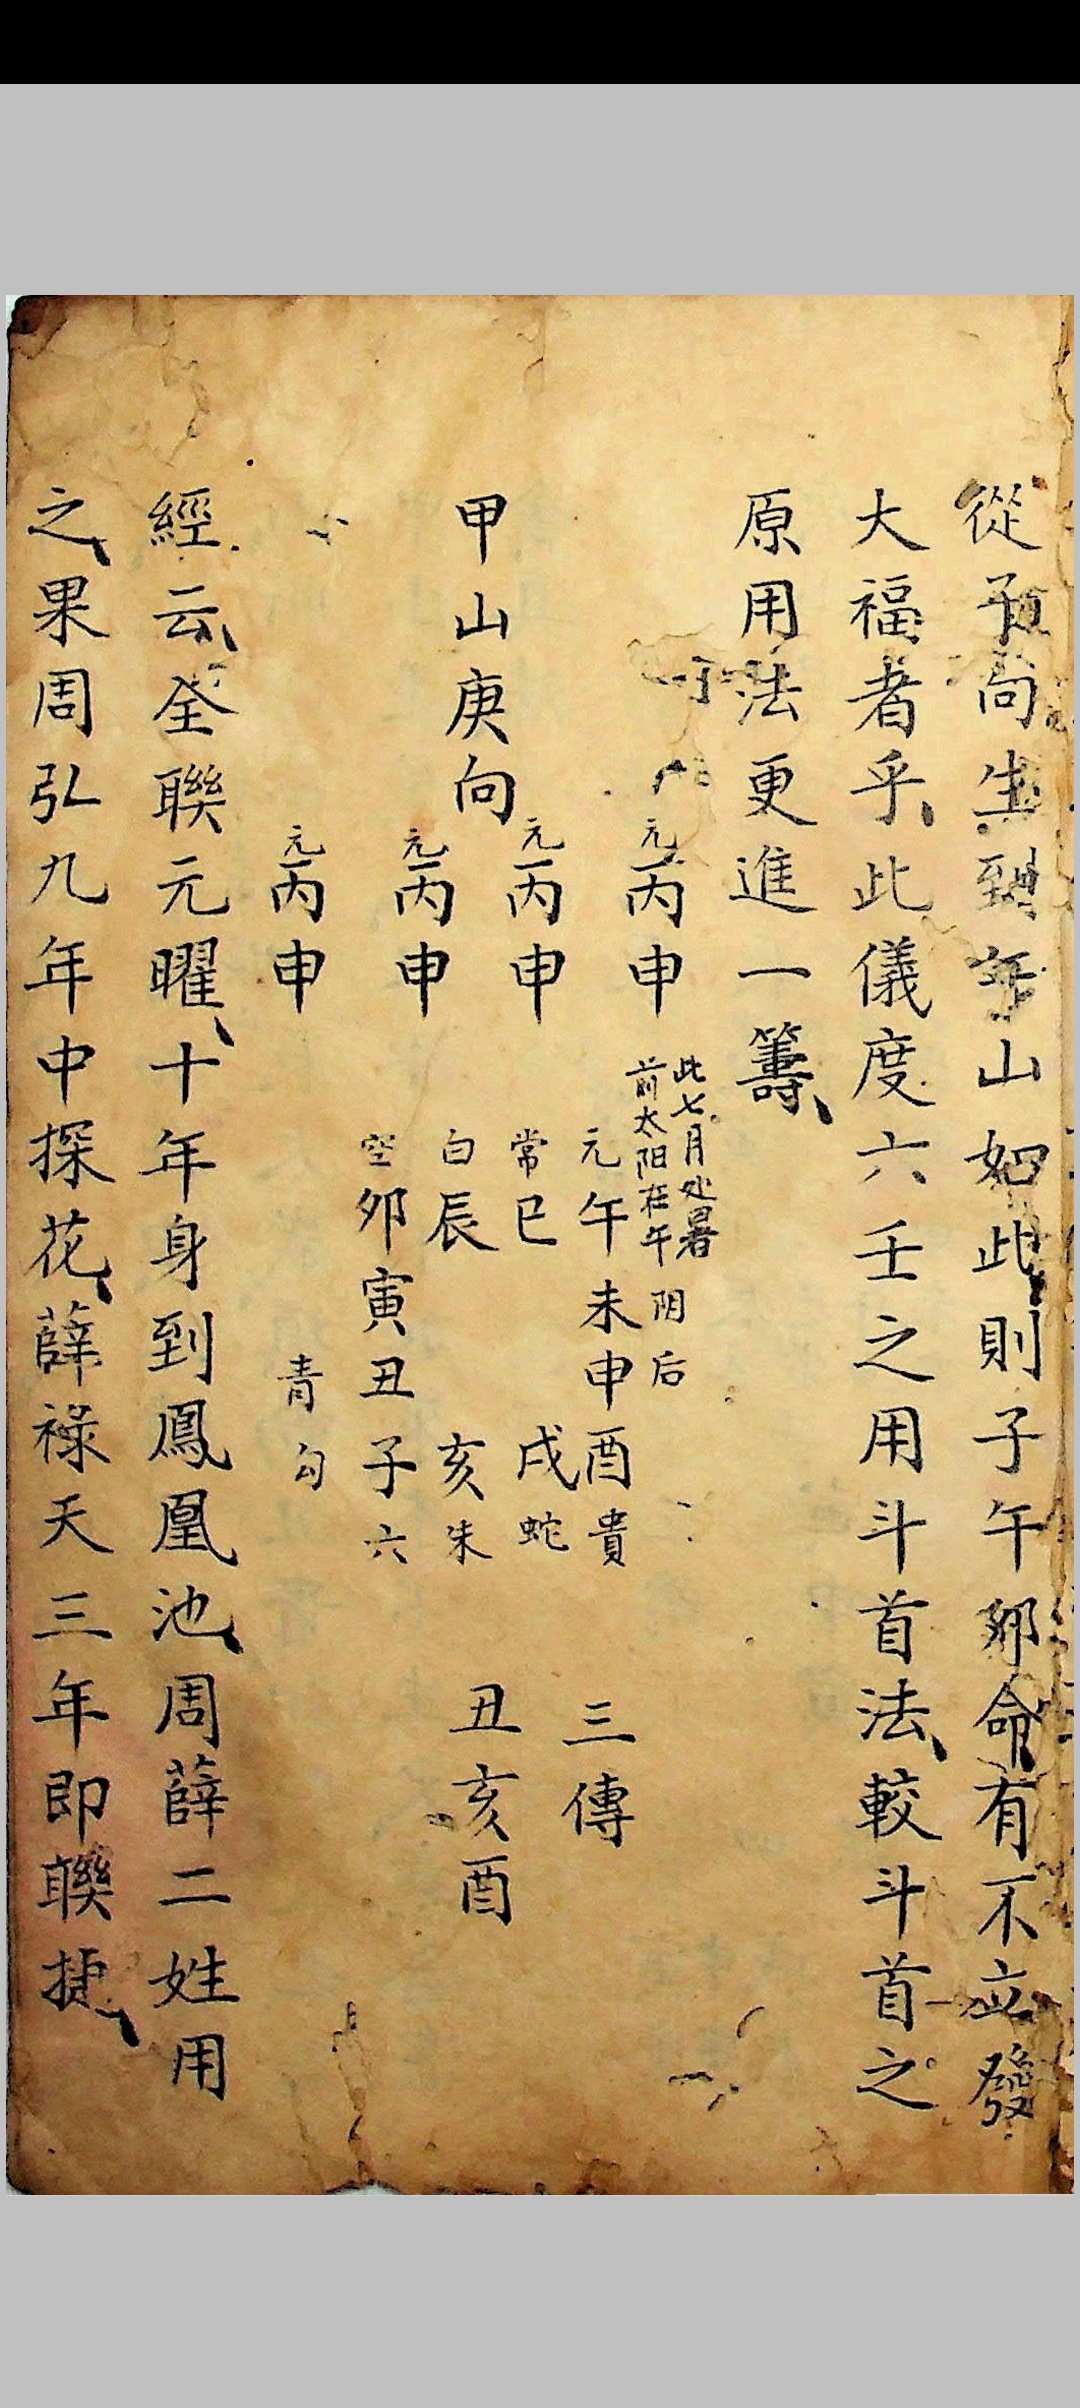 從子向生到午山如此則子午郍命有不立發
大福者乎此儀度六壬之用斗首法較斗首之
原用法更進一籌
元丙申
元丙申
甲山庚向
元丙申
元丙申
此七月处暑
前太阳在午
阴后
元午未申酉貴
常巳 戌蛇
白辰 亥朱
空卯寅丑子六
青勾
三傳
丑亥酉
經云全聯元曜十年身到鳳凰池周薛二姓用
之果周弘九年中探花薛祿天三年即聯捷